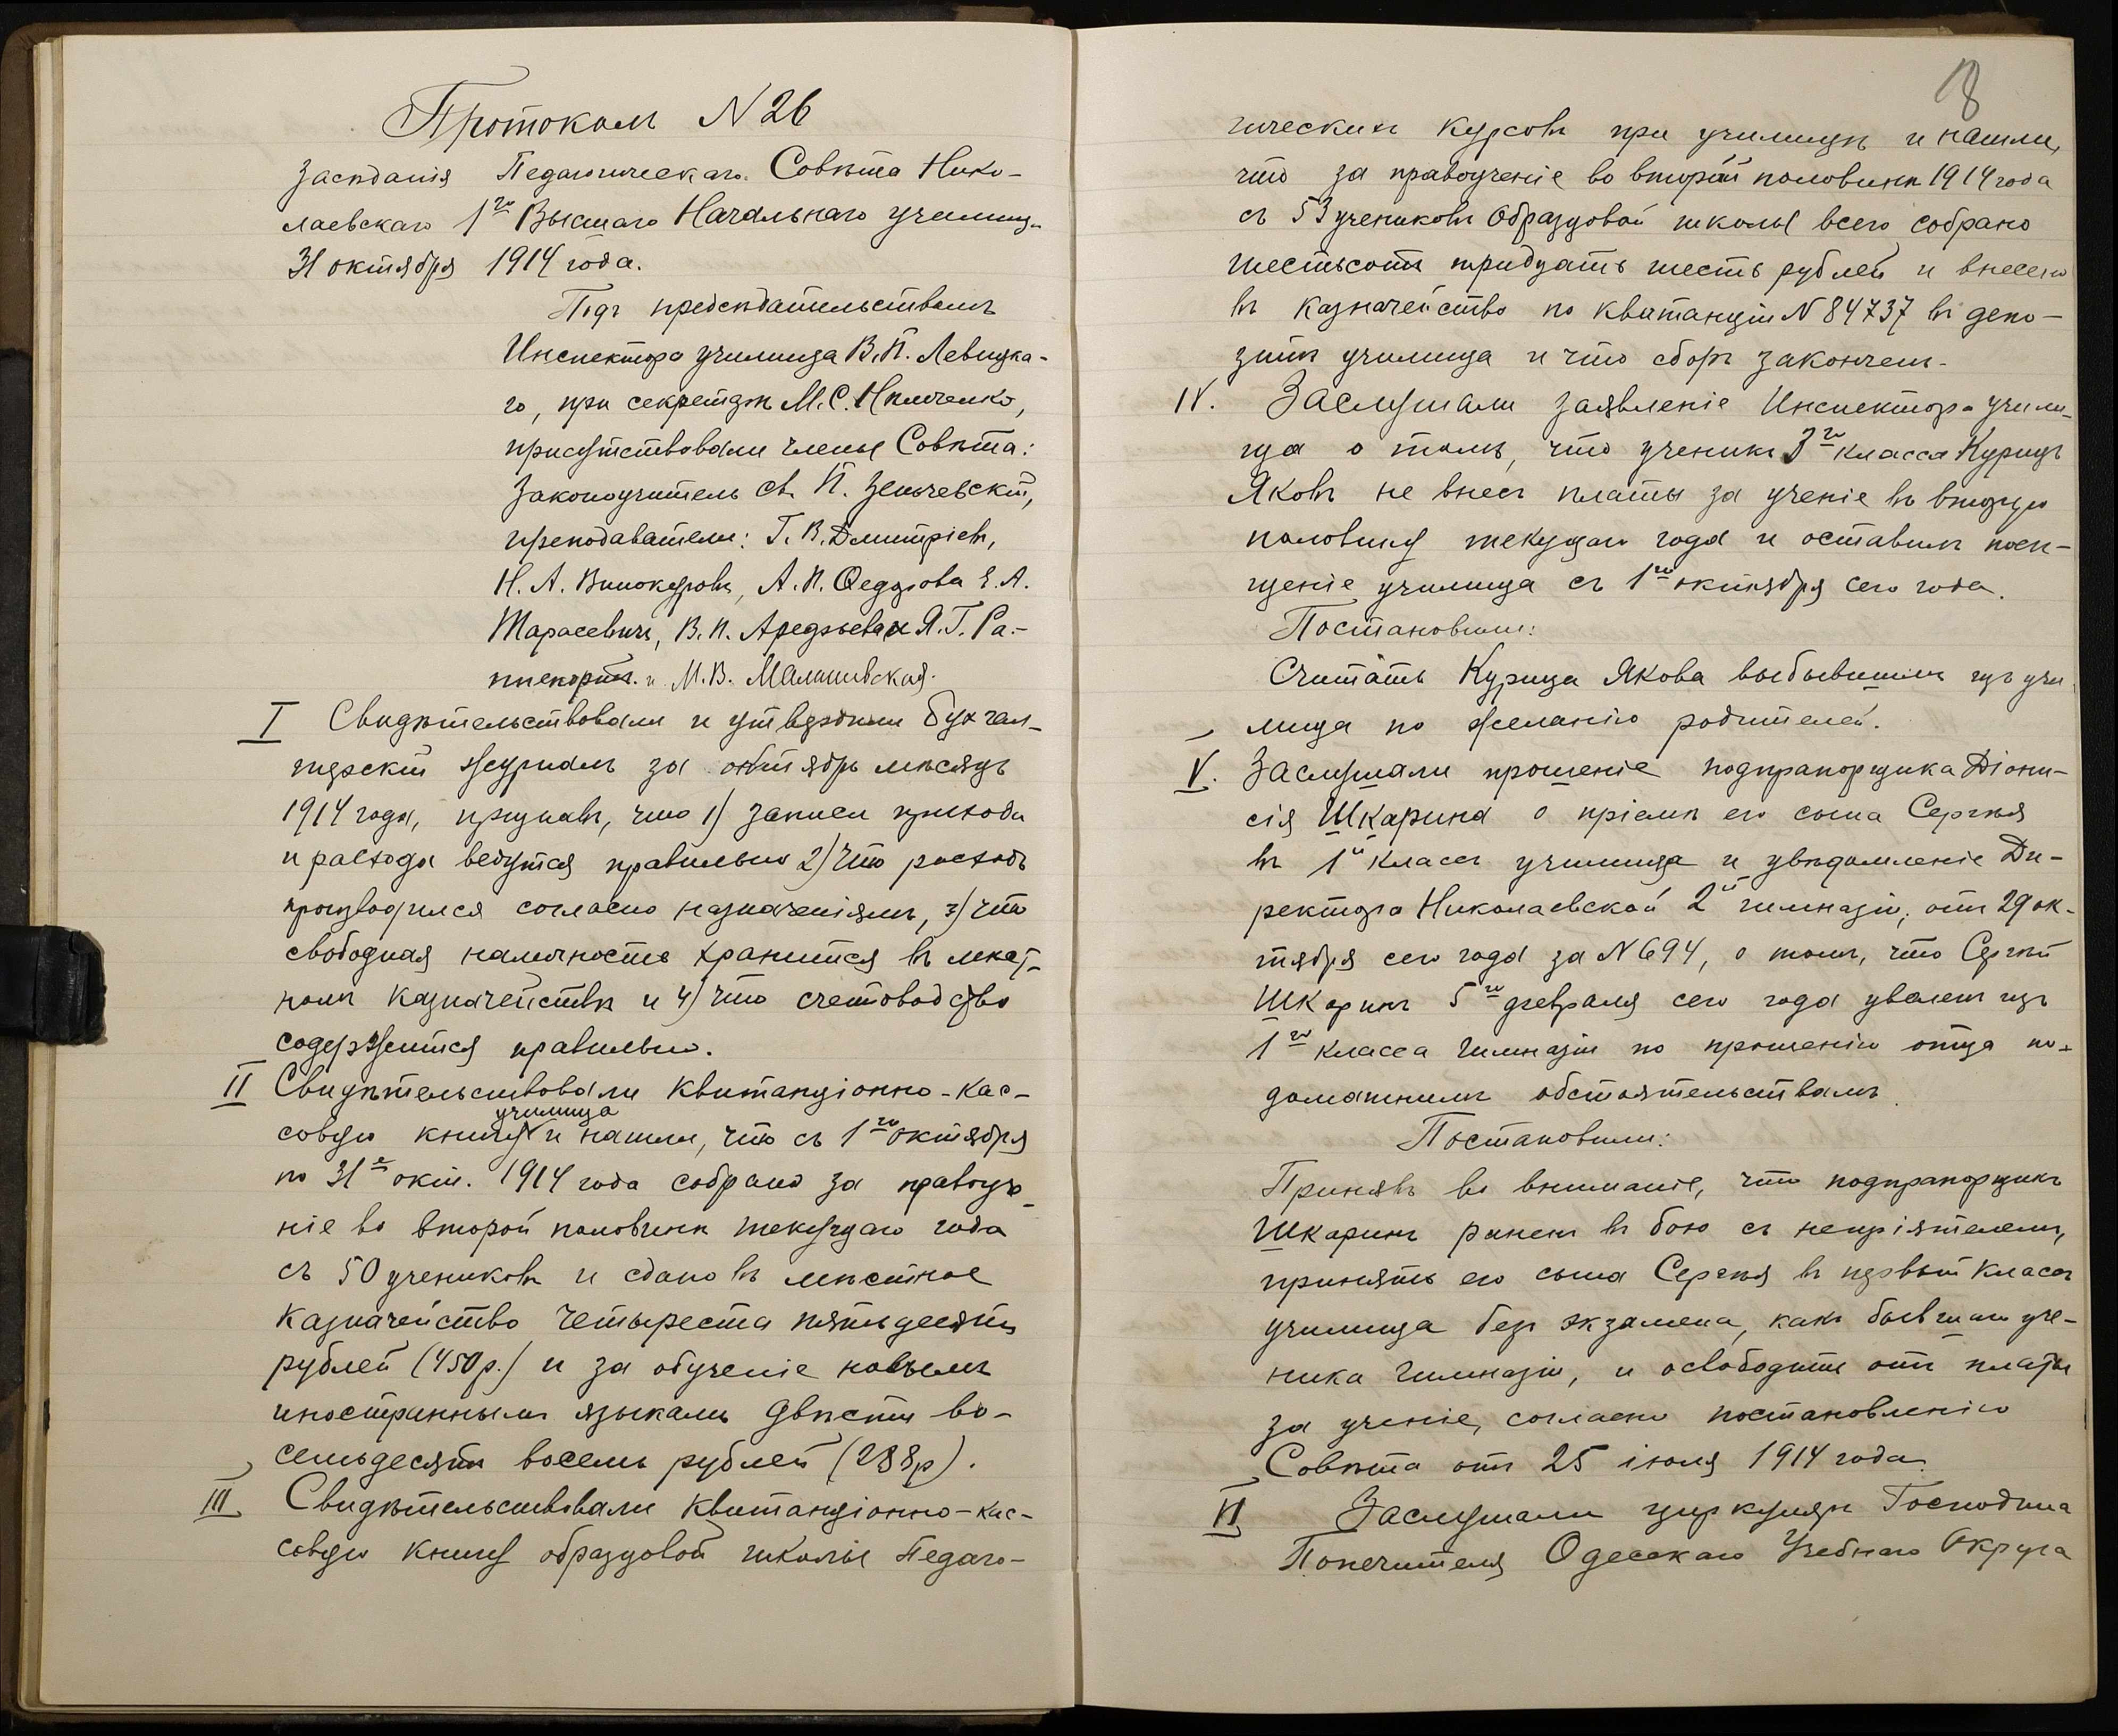 Протоколъ N 26
засѣданія Педагогическаго Совѣта Нико-
лаевскаго 1го Высшаго Начальнаго училища
31 октября 1914 года.
Подъ предсѣдательствомъ
Инспектора училища В. П. Левицка-
го, при секретарѣ М. С. Нимченко,
присутствовали члены Совѣта:
Законоучитель св. П. Зеньчевскій,
преподаватели: Г. В. Дмитріевъ,
Н. А. Винокуровъ, А. П. Ѳедорова Е. А.
Тарасевичъ, В. П. Арефьева и Я. Г. Ра-
ппепортъ. и М. В. Малишевская.
I Свидѣтельствовали и утвердили бухгал-
терскій журналъ за октябрь мѣсяцъ
1914 года, признавъ, что 1) записи прихода
и расхода ведутся правильно 2) Что расходъ
производился согласно назначеніямъ, 3) что
свободная наличность хранится въ мѣст-
номъ казначействѣ и 4) что счетоводство
содержится правильно.
II Свидѣтельствовали квитанціонно-кас-
училища
совую книгу и нашли, что съ 1го октября
по 31е окт. 1914 года собрано за правоуче-
ніе во второй половинѣ текущаго года
съ 50 учениковъ и сдано въ мѣстное
казначейство четыреста пятьдесятъ
рублей (450 р.) и за обученіе новымъ
иностраннымъ языкамъ двѣсти во-
семьдесятъ восемь рублей (288 р).
III Свидѣтельствовали квитанціонно-кас-
совую книгу образцовой школы Педаго-
18
гическихъ курсовъ при училищѣ и нашли,
что за правоученіе во второй половинѣ 1914 года
съ 53 учениковъ Образцовой школы всего собрано
шестьсотъ тридцать шесть рублей и внесено
въ казначейство по квитанціи N 84737 въ депо-
зитъ училища и что сборъ законченъ.
IV. Заслушали заявленіе Инспектора учили-
ща о томъ, что ученикъ 3го класса Курицъ
Яковъ не внесъ платы за ученіе въ вторую
половину текущаго года и оставилъ посѣ-
щеніе училища съ 1го октября сего года.
Постановили:
Считать Курица Якова выбывшимъ изъ учи-
лища по желанію родителей.
V. Заслушали прошеніе подпрапорщика Діони-
сія Шкарина о пріемѣ его сына Сергѣя
въ 1й классъ училища и увѣдомленіе Ди-
ректора Николаевской 2й гимназіи, отъ 29 ок-
тября сего года за N 694, о томъ, что Сергѣй
Шкаринъ 5го февраля сего года уволенъ изъ
1го класса гимназіи по прошенію отца по-
домашнимъ обстоятельствамъ.
Постановили:
Принявъ во вниманіе, что подпрапорщикъ
Шкаринъ раненъ въ бою съ непріятелемъ,
принять его сына Сергѣя въ первый классъ
училища безъ экзамена, какъ бывшаго уче-
ника гимназіи, и освободить отъ платы
за ученіе, согласно постановленію
Совѣта отъ 25 іюля 1914 года.
VI Заслушали циркуляръ Господина
Попечителя Одесскаго Учебнаго Округа